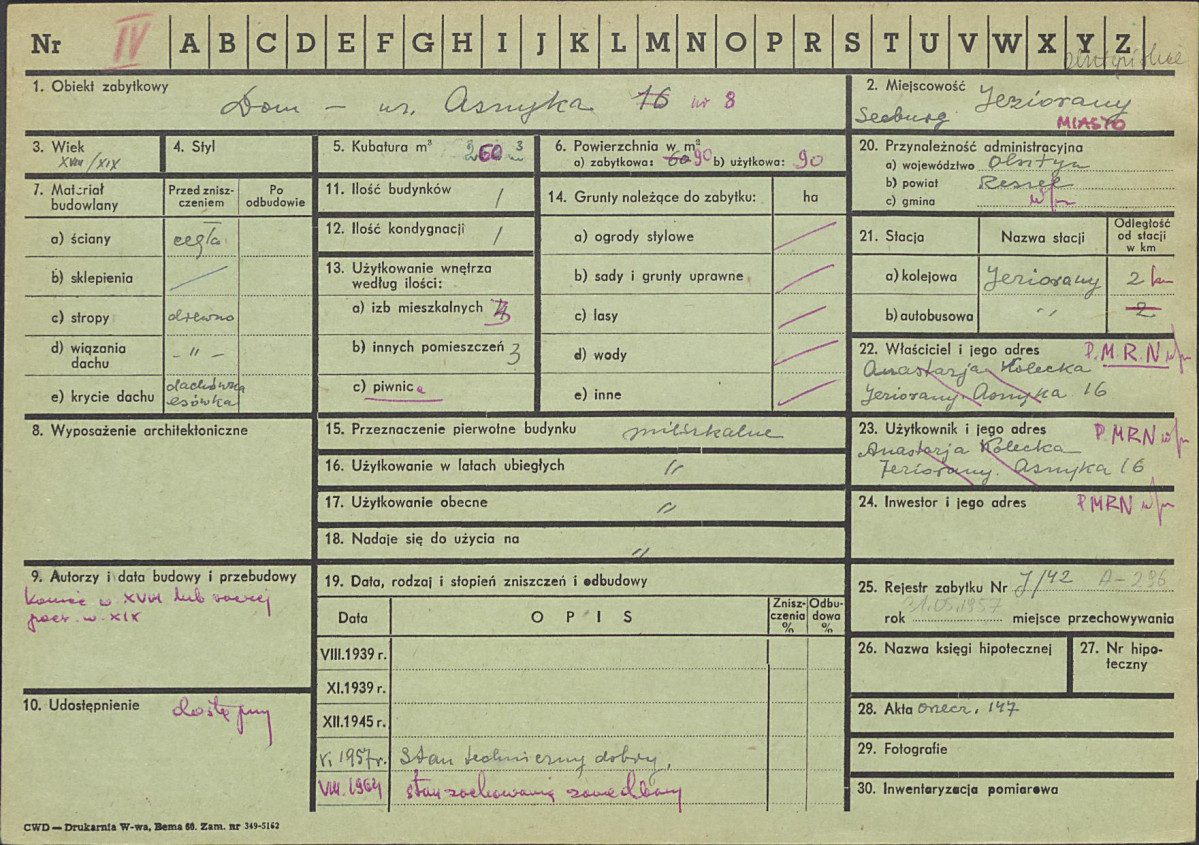 Nr IV A B C D E F G H I J K L M N O P R S T U V W X Y Z
1. Obiekt zabytkowy
Dom – ul. Asnyka 16 nr 8
2. Miejscowość Jeziorany
Seeburg MIASTO
3. Wiek
XVIII/XIX
4. Styl
5. Kubatura m³ 260 m³
6. Powierzchnia w m²
a) zabytkowa: 60 90 b) użytkowa: 90
20. Przynależność administracyjna
a) województwo Olsztyn
b) powiat Reszel
c) gmina w/m
7. Materiał budowlany
Przed zniszczeniem
Po odbudowie
a) ściany cegła
b) sklepienia
c) stropy drewno
d) wiązania dachu – " –
e) krycie dachu dachówka esówka
11. Ilość budynków 1
12. Ilość kondygnacji 1
13. Użytkowanie wnętrza według ilości:
a) izb mieszkalnych 3
b) innych pomieszczeń 3
c) piwnice
14. Grunty należące do zabytku: ha
a) ogrody stylowe
b) sady i grunty uprawne
c) lasy
d) wody
e) inne
21. Stacja
Nazwa stacji
Odległość od stacji w km
a) kolejowa Jeziorany 2 km
b) autobusowa " 2
22. Właściciel i jego adres P.M.R.N w/m
Anastazja Kolecka
Jeziorany. Asnyka 16
8. Wyposażenie architektoniczne
15. Przeznaczenie pierwotne budynku mieszkalne
16. Użytkowanie w latach ubiegłych "
17. Użytkowanie obecne "
18. Nadaje się do użycia na "
23. Użytkownik i jego adres P.MRN w/m
Anastazja Kolecka
Jeziorany. Asnyka 16
24. Inwestor i jego adres PMRN w/m
9. Autorzy i data budowy i przebudowy
Koniec w. XVIII lub raczej
pocz. w. XIX
10. Udostępnienie dostępny
19. Data, rodzaj i stopień zniszczeń i odbudowy
Data
O P I S
Zniszczenia %
Odbudowa %
VIII.1939 r.
XI.1939 r.
XII.1945 r.
V. 1957 r. Stan techniczny dobry.
VIII. 1964 stan zachowania zaniedbany
25. Rejestr zabytku Nr J/42 A-236
31.05.1957
rok miejsce przechowywania
26. Nazwa księgi hipotecznej
27. Nr hipoteczny
28. Akta orzecz. 147
29. Fotografie
30. Inwentaryzacja pomiarowa
CWD — Drukarnia W-wa, Bema 60. Zam. nr 349-5162